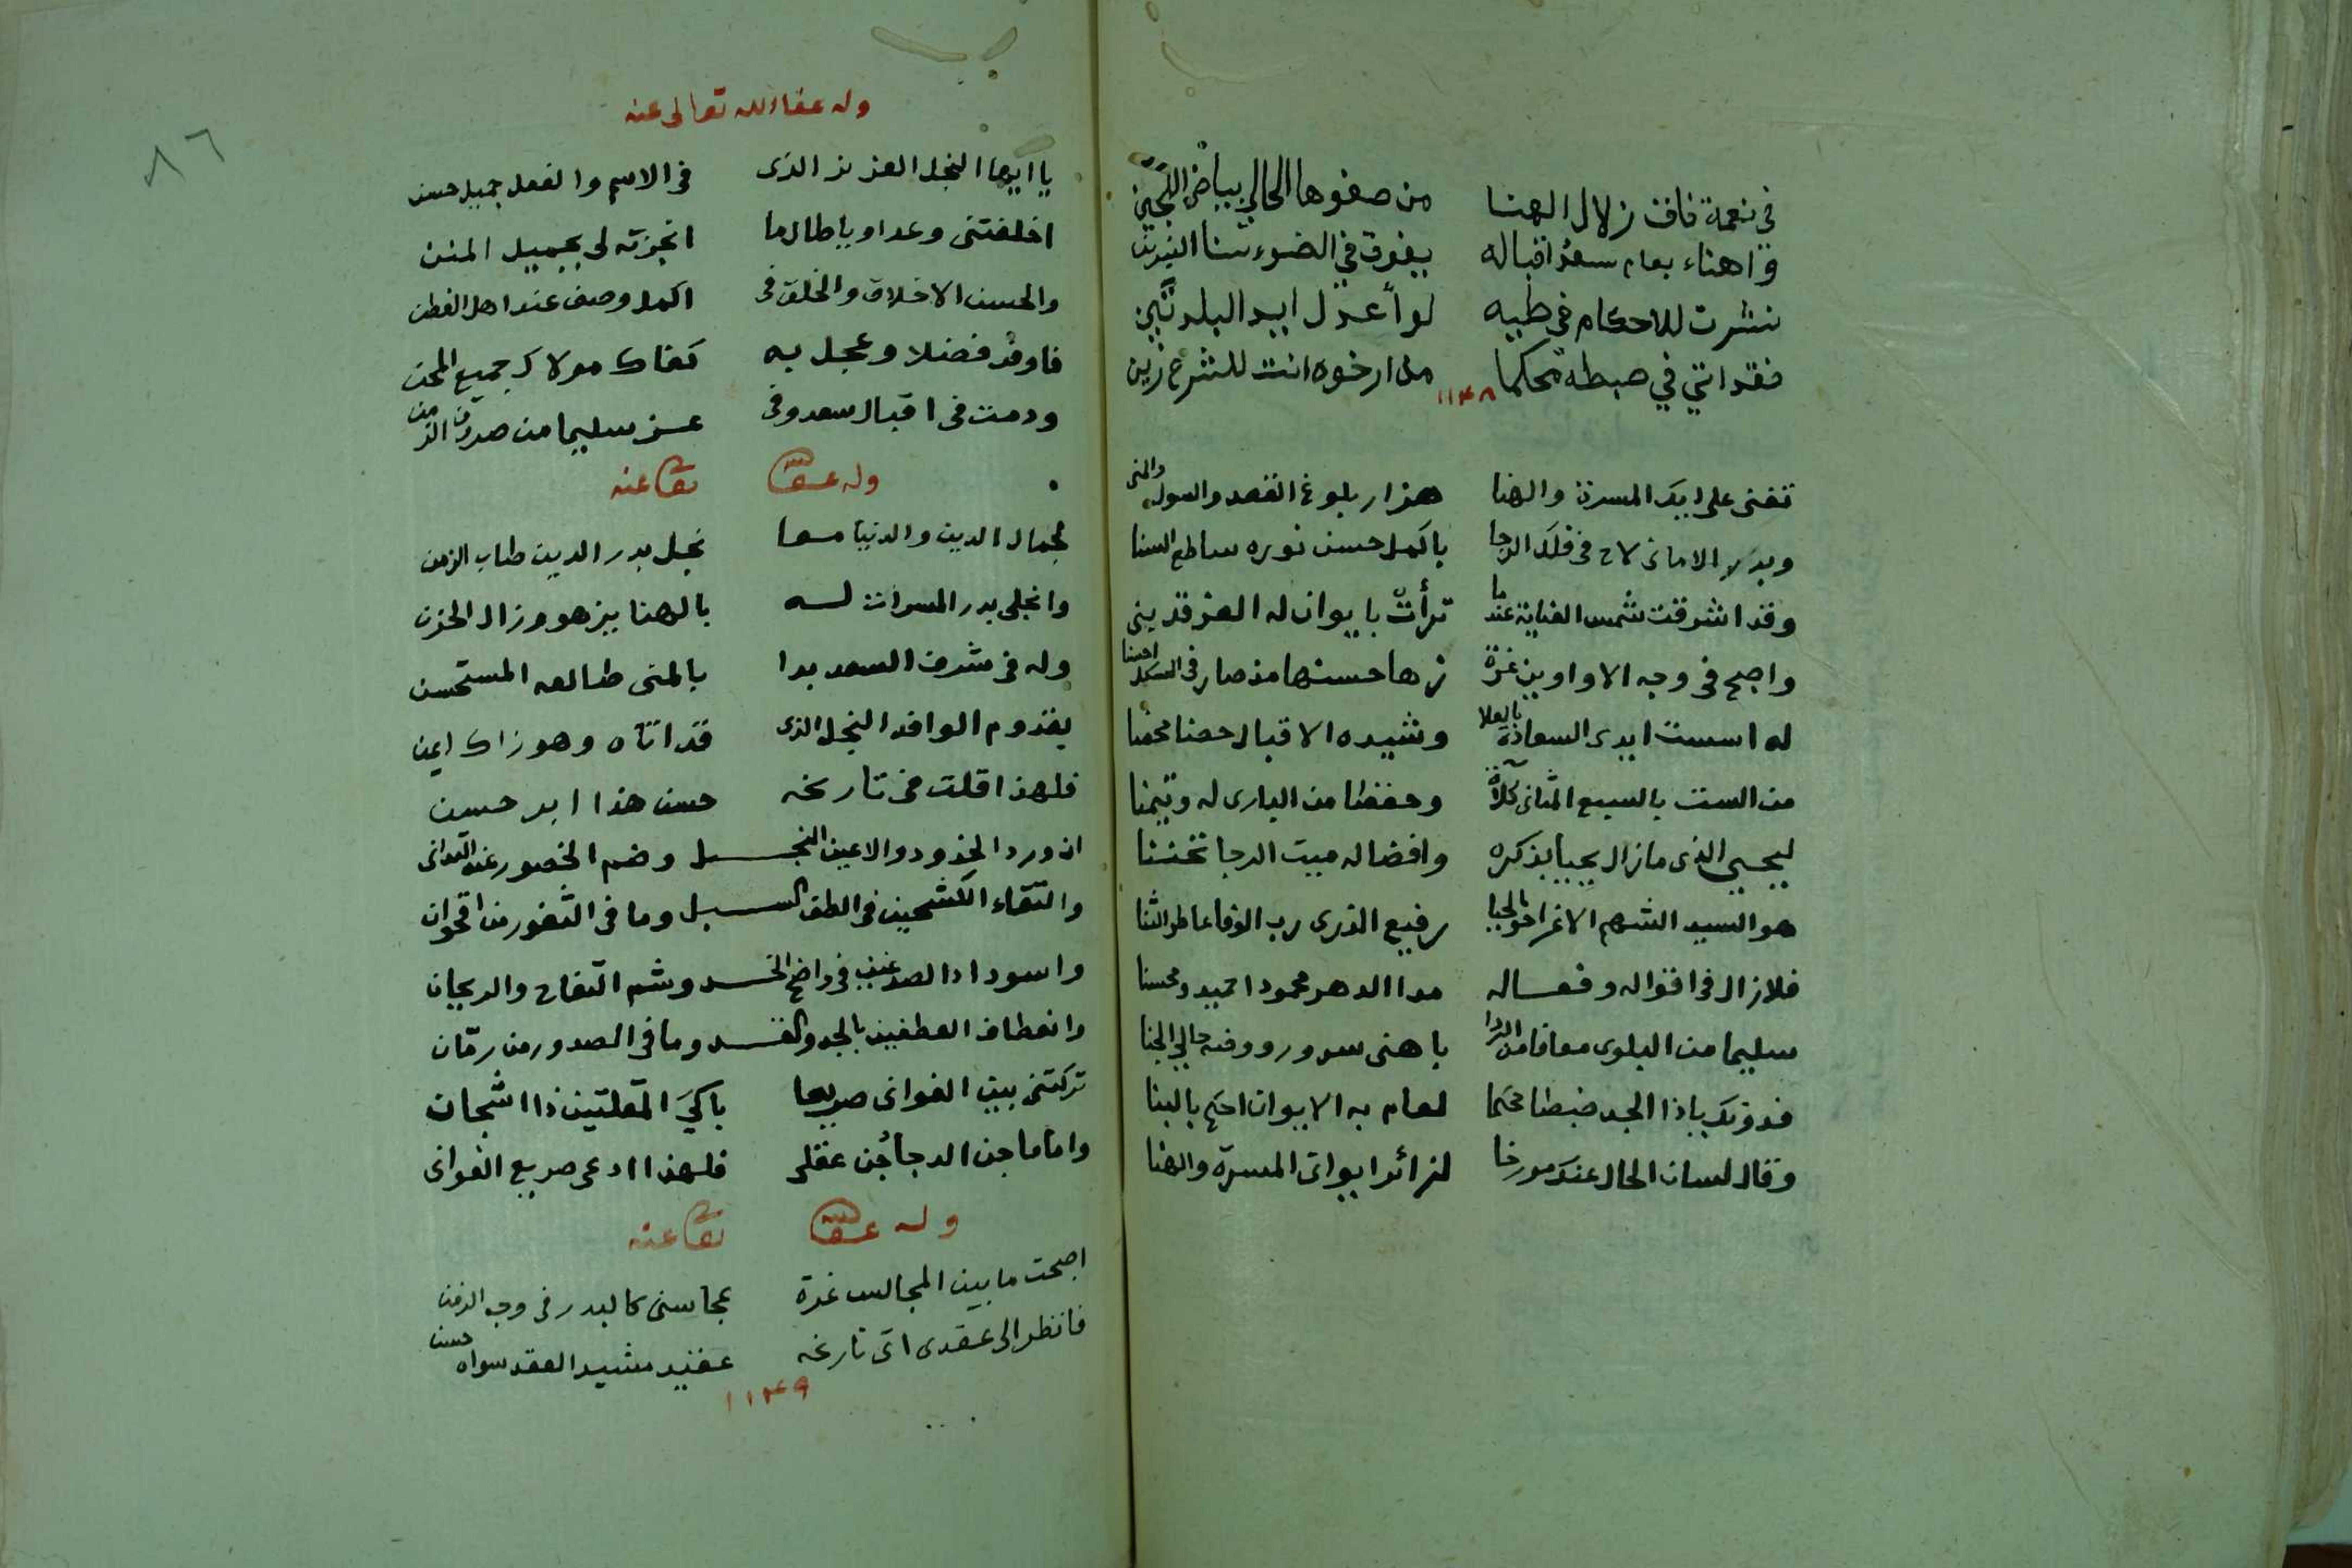 في نعمة فاقت زلال الهنا من صفوها الحالي بياض اللجين
واهناء بعام سعد اقباله يفوق في الضوء سنا النيرين
نشرت للاحكام في طيه لوا عدل ايد البلدتين
فقد اتي في ضبطه محكما مذ ارخوه انت للشرع زين
١١٤٨
تغنى على ايك المسرة والهنا هزار بلوغ القصد والسول والمنى
وبدر الاماني لاح في فلك الرجا باكمل حسن نوره ساطع السنا
وقد اشرقت شمس العناية عندما ترأت بايوان له العز قد بنى
واصبح في وجه الاواوين غرة زها حسنها مذ صار في
له اسست ايدى السعادة بالعلا وشيده الاقبال حصنا محصنا
من الست بالسبع المثانى كلاة وحفظا من البارى له وتيمنا
ليحيى الذى مازال يحيا بذكره وافضاله ميت الرجا تحننا
هو السيد الشهم الاغر اخو الحيا رفيع الذرى رب الوفا عاطر الثنا
فلازال في اقواله وفعاله مدا الدهر محمودا حميد ومحسنا
سليما من البلوى معافا من الردا باهنى سرور ووفيه حالي الجنا
فدونك ياذا المجد ضبطا محكما لعام به الايوان احكم بالبنا
وقال لسان الحال عندك مورخا لزائر ايوان المسرة والهنا
وله عفا الله تعالى عنه
يا ايها النجل العزيز الذى في الاسم والفعل جميل حسن
اخلفتنى وعدا ويا طالما انجزته لى بجميل المنن
والحسن الاخلاق والخلق في اكمل وصف عند اهل الفطن
فاوف فضلا وعجل به كفاك مولاك جميع المحن
ودمت في اقبال سعد وفى عز سليما من صروف الزمن
وله عفا الله تعا عنه
لجمال الدين والدنيا معا نجل بدر الدين طاب الزمن
وانجلى بدر المسرات له بالهنا يزهو وزال الحزن
وله في شرف السعد بدا بالمنى طالعه المستحسن
بقدوم الوافد النجل الذى قد اتاه وهو زاك ايمن
فلهذا قلت في تاريخه حسن هذا ابر حسن
ان ورد الخدود والاعين النجل وضم الخصور عند التوانى
والتقاء الكشحين في الطف السبل وما في الثغور من اقحوان
واسوداد الصدغين في واضح الخد وشم التفاح والريحان
وانعطاف العطفين بالجد والقد وما في الصدور من رمّان
تركتنى بين الغوانى صريعا باكي المقلتين ذا اشجان
واماما جن الدجا جُن عقلى فلهذا ادعى صريع الغوانى
وله عفا الله تعا عنه
اصبحت ما بين المجالس غرة بمحاسنى كالبدر في وجه الزمن
فانظر الى عقدى اتى تاريخه عقيد مشيد العقد سواه حسن
١١٤٩
٨٦